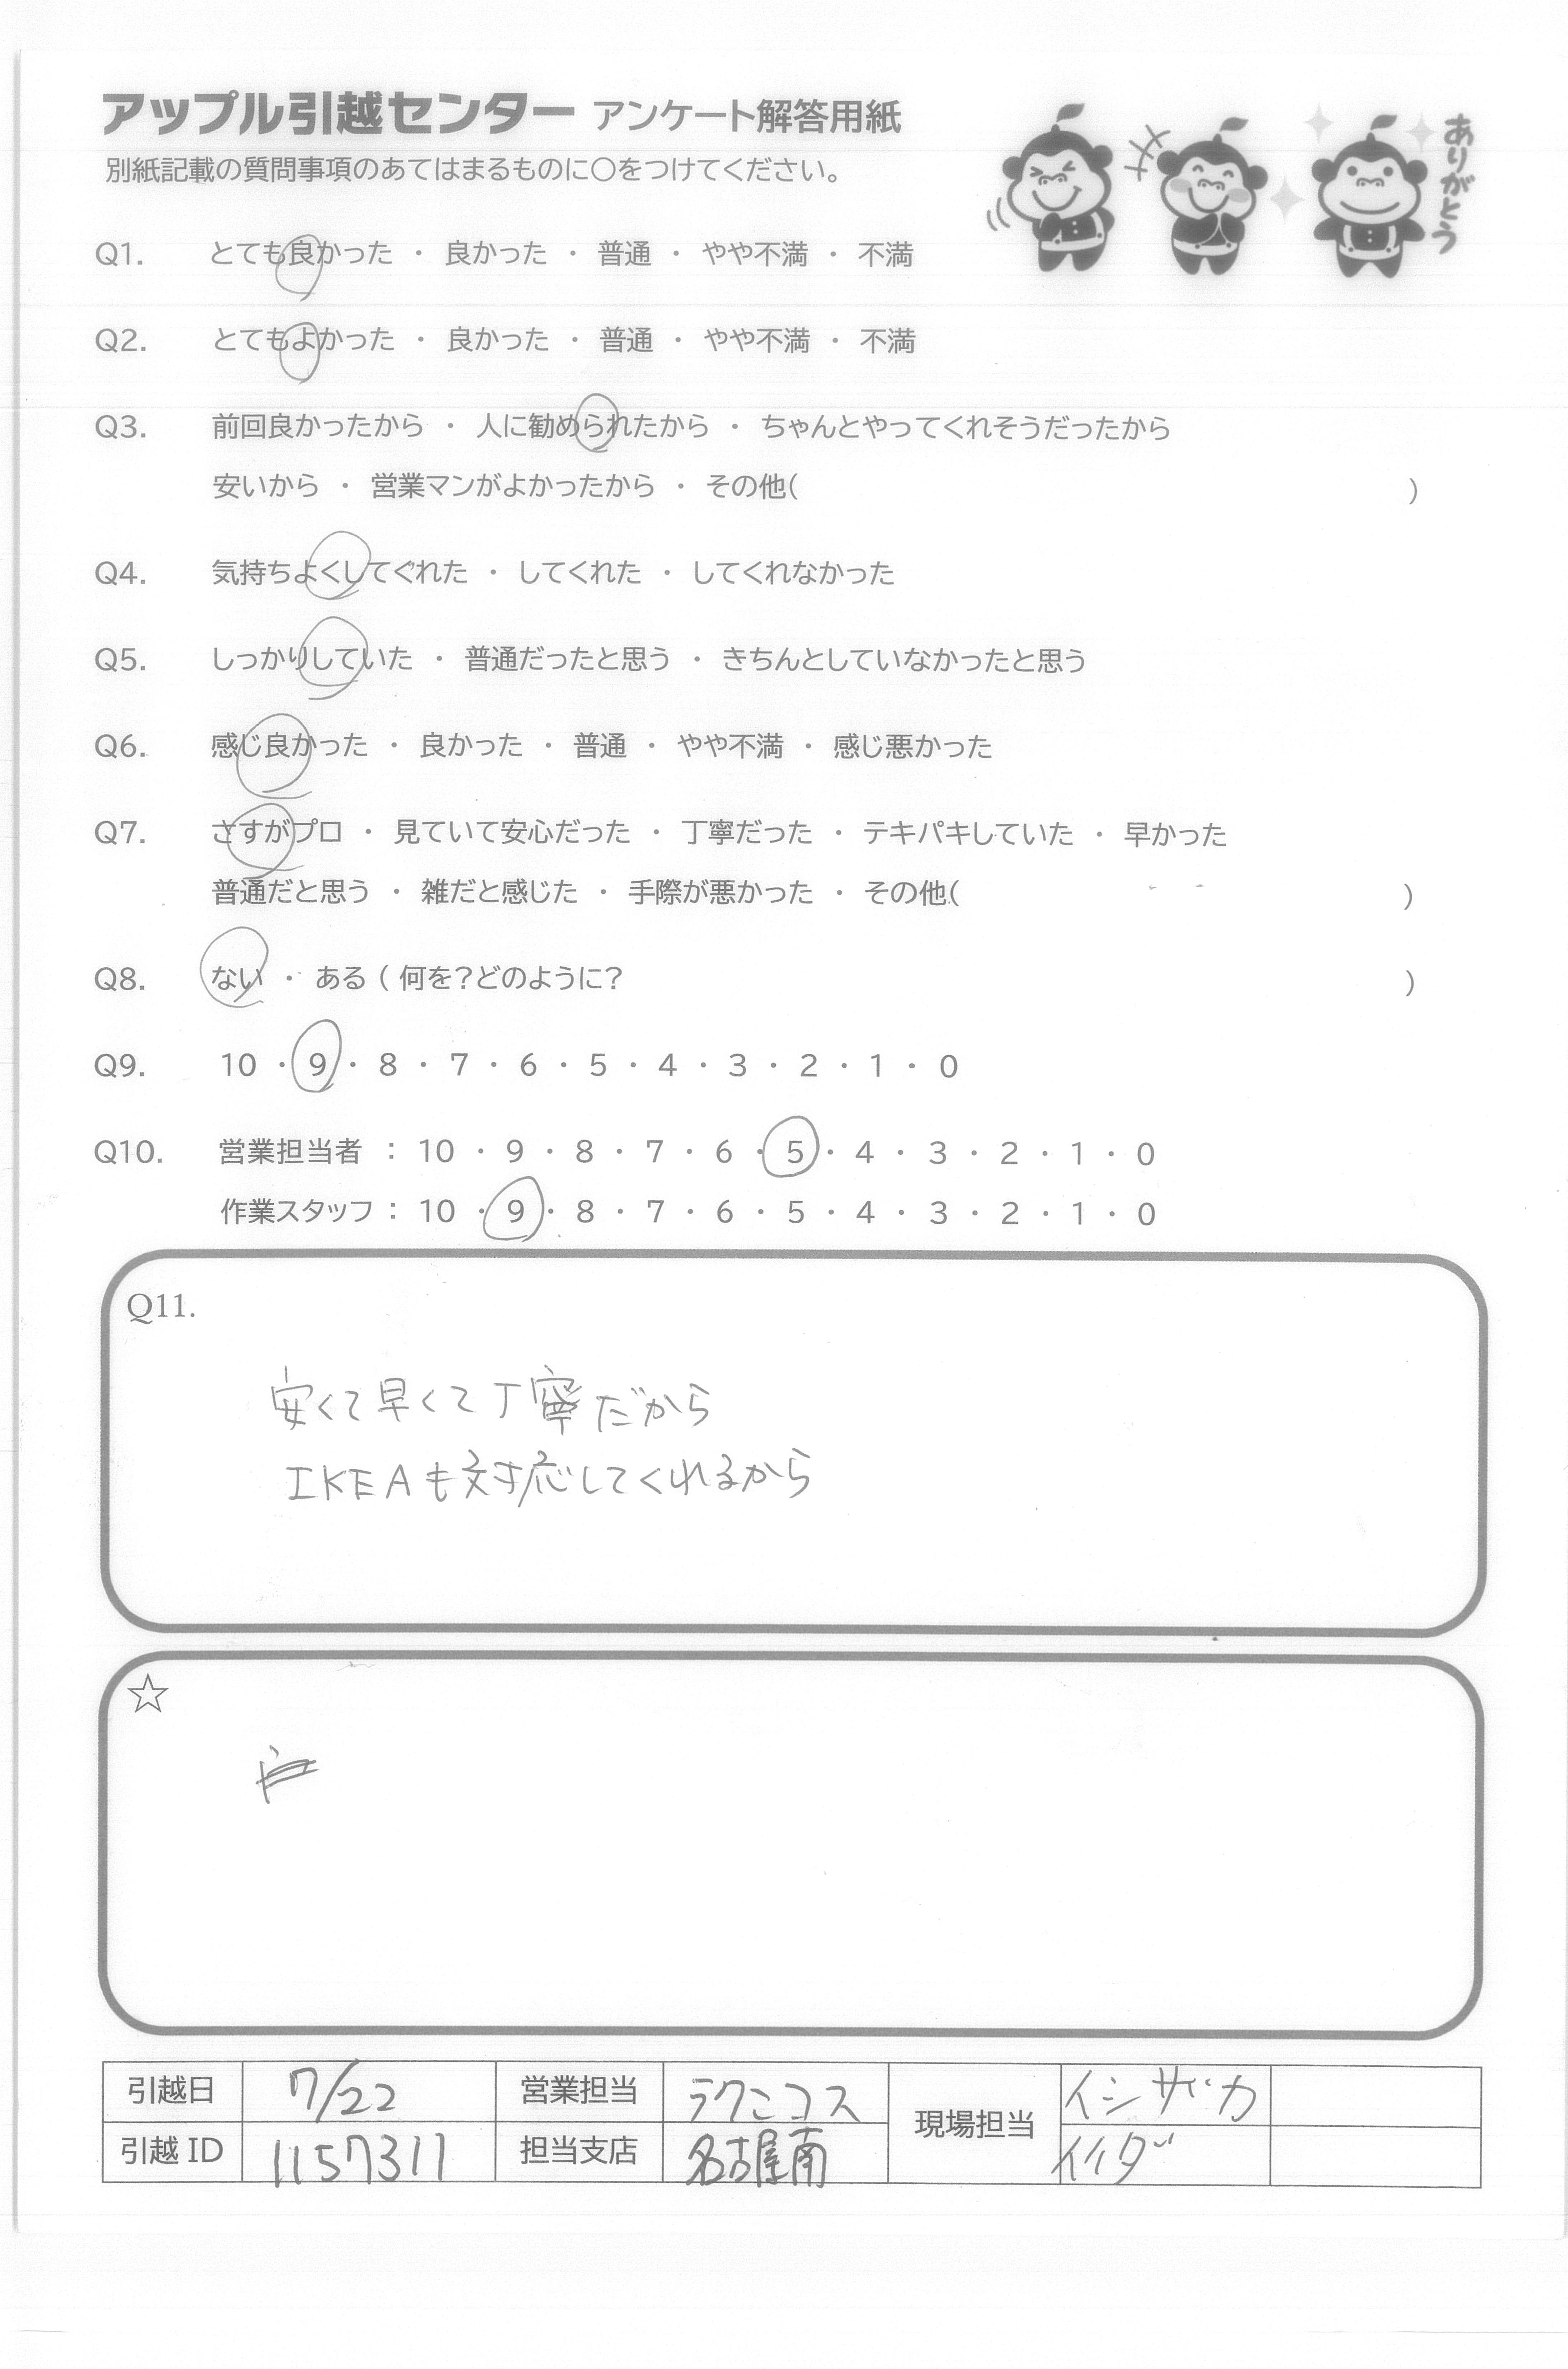 アップル引越センター アンケート解答用紙
ありがとう
別紙記載の質問事項のあてはまるものに○をつけてください。
Q1. とても良かった ・ 良かった ・ 普通 ・ やや不満 ・ 不満
Q2. とてもよかった ・ 良かった ・ 普通 ・ やや不満 ・ 不満
Q3. 前回良かったから ・ 人に勧められたから ・ ちゃんとやってくれそうだったから
安いから ・ 営業マンがよかったから ・ その他( )
Q4. 気持ちよくしてくれた ・ してくれた ・ してくれなかった
Q5. しっかりしていた ・ 普通だったと思う ・ きちんとしていなかったと思う
Q6. 感じ良かった ・ 良かった ・ 普通 ・ やや不満 ・ 感じ悪かった
Q7. さすがプロ ・ 見ていて安心だった ・ 丁寧だった ・ テキパキしていた ・ 早かった
普通だと思う ・ 雑だと感じた ・ 手際が悪かった ・ その他( )
Q8. ない ・ ある ( 何を?どのように? )
Q9. 10 ・ 9 ・ 8 ・ 7 ・ 6 ・ 5 ・ 4 ・ 3 ・ 2 ・ 1 ・ 0
Q10. 営業担当者 : 10 ・ 9 ・ 8 ・ 7 ・ 6 ・ 5 ・ 4 ・ 3 ・ 2 ・ 1 ・ 0
作業スタッフ : 10 ・ 9 ・ 8 ・ 7 ・ 6 ・ 5 ・ 4 ・ 3 ・ 2 ・ 1 ・ 0
Q11.
安くて早くて丁寧だから
IKEAも対応してくれるから
☆
引越日 7/22 営業担当 ラクニコス 現場担当 イシザカ
引越ID 1157311 担当支店 名古屋南 イイダ